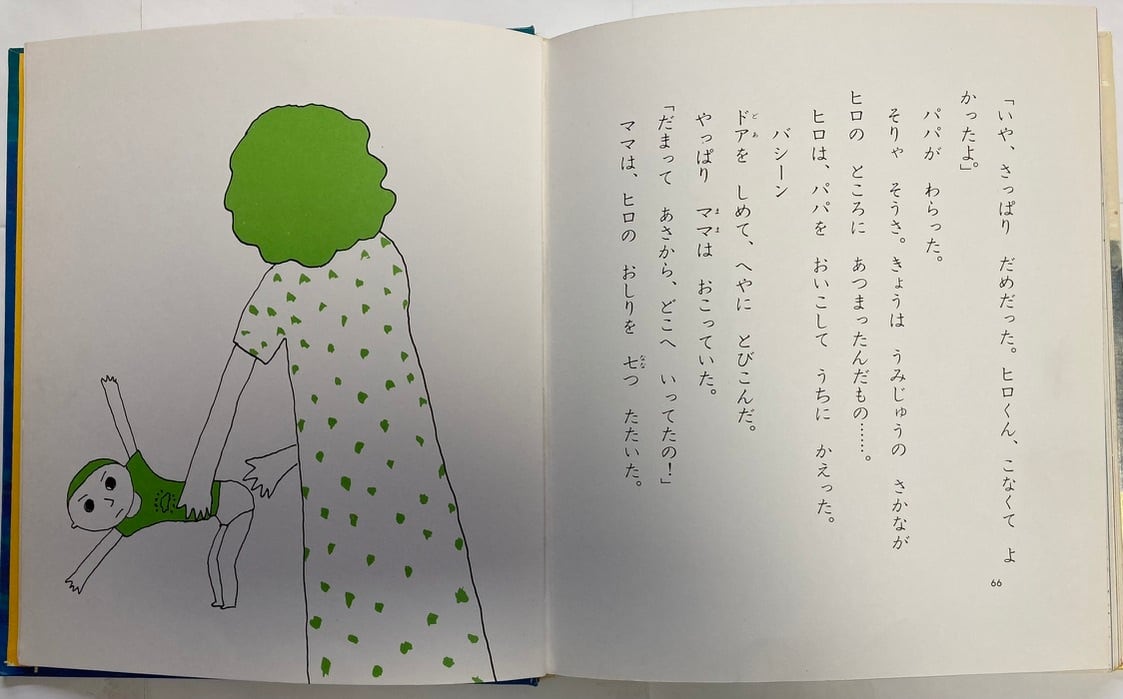 「いや、さっぱり　だめだった。ヒロくん、こなくて　よ
かったよ」
パパが　わらった。
そりゃ　そうさ。きょうは　うみじゅうの　さかなが
ヒロの　ところに　あつまったんだもの……。
ヒロは、パパを　おいこして　うちに　かえった。
バシーン
ドアを　しめて、へやに　とびこんだ。
どあ
やっぱり　ママは　おこっていた。
まま
「だまって　あさから、どこへ　いってたの！」
ママは、ヒロの　おしりを　七つ　たたいた。
なな
66